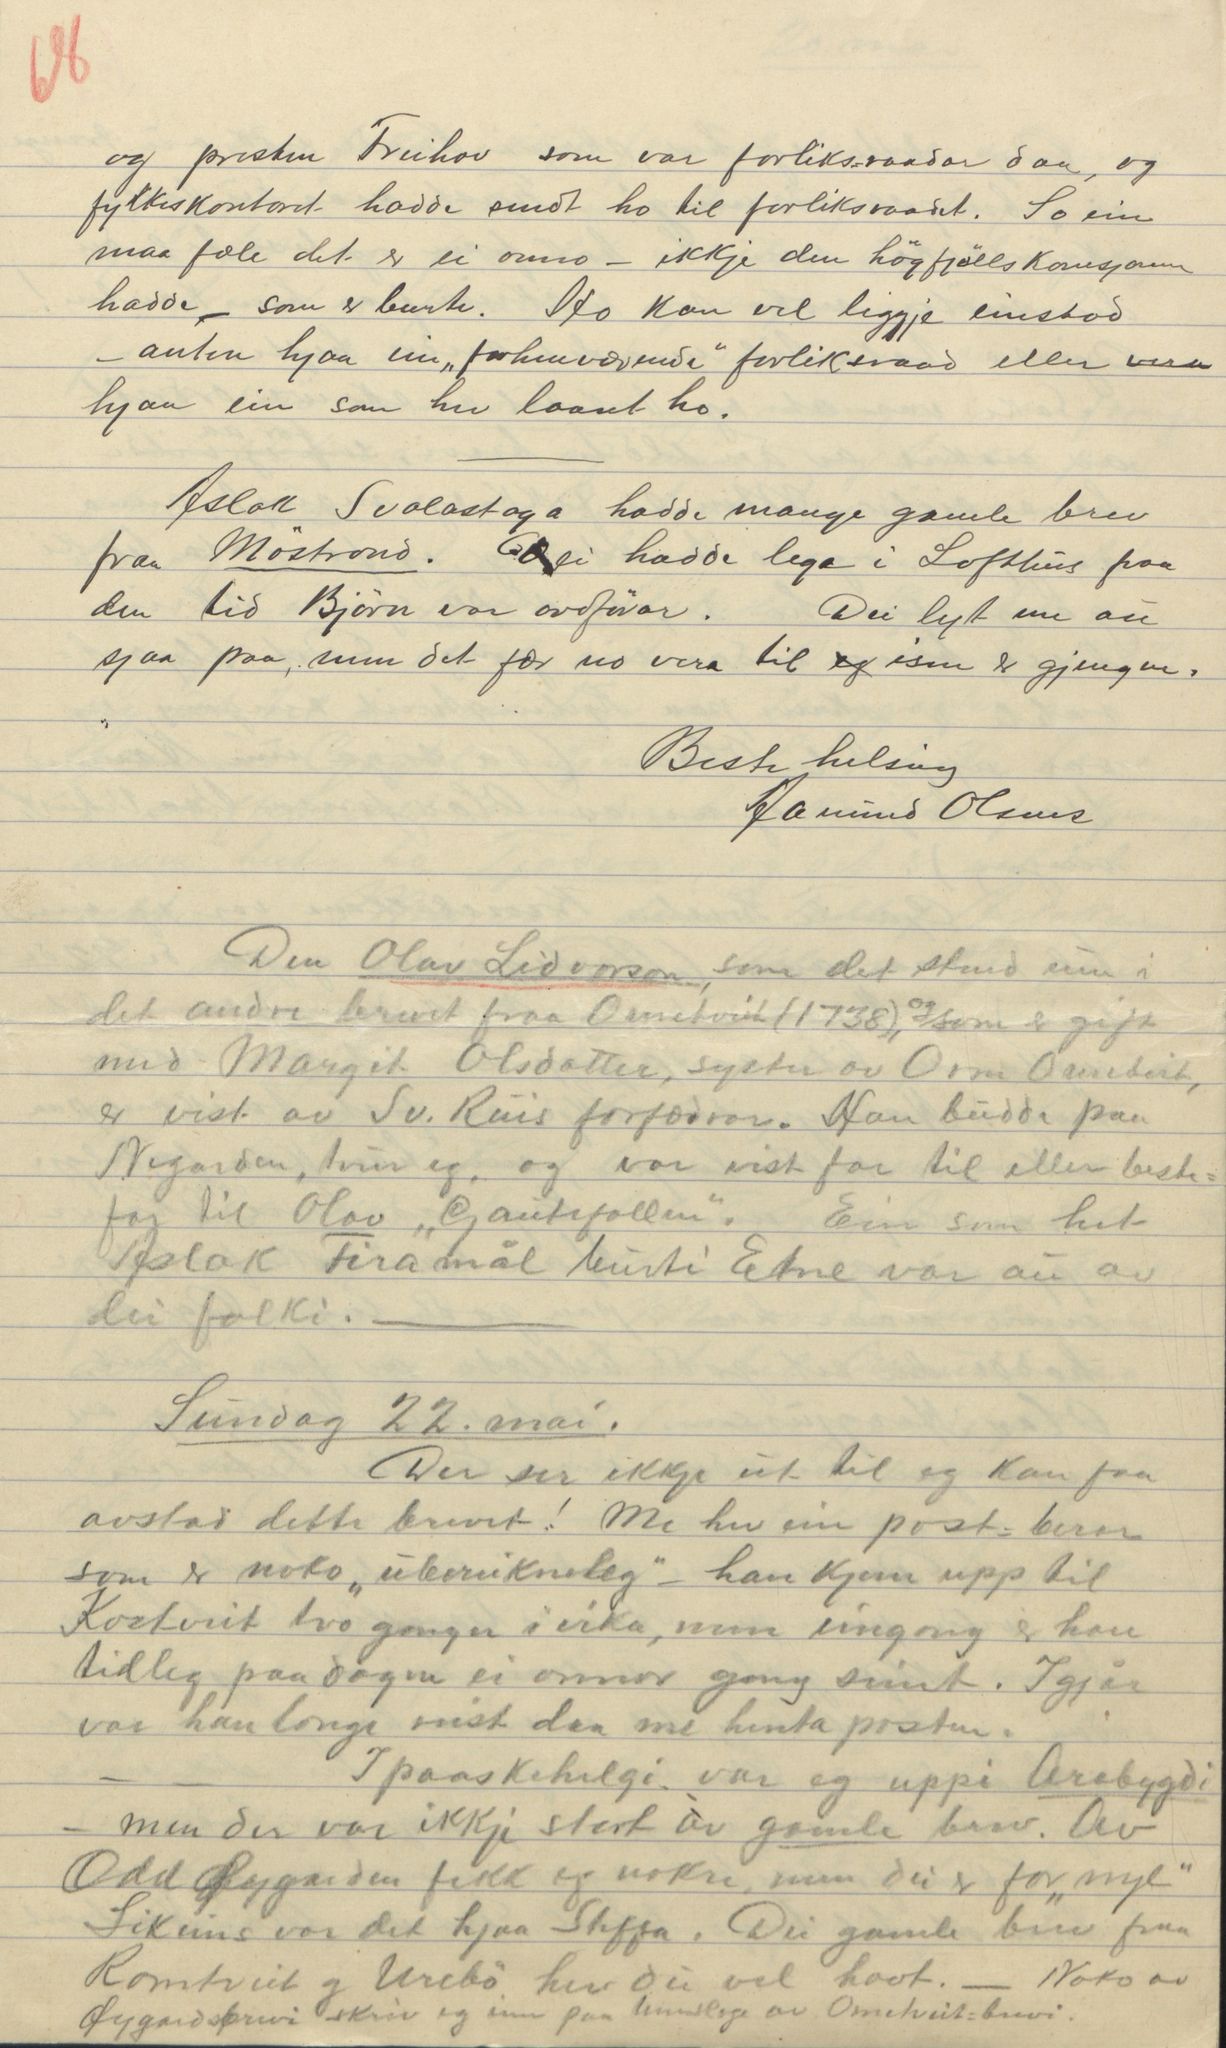 68
og presten Freihov som var forliks-raadar daa, og
fylkeskontoret hadde sendt ho til forliksraadet. So ein
maa føle det er ei onno - ikkje den högfjellskomisjonen
hadde - som er burte. Ho kan vel liggje einstad
- anten hjaa ein „forhenværende" forliksraad eller vera
hjaa ein som hev laant ho.
Aslak Svalastoga hadde mange gamle brev
fraa Möstrond. Dei hadde lega i Lofthus paa
den tid Björn var ordförar. Dei lyt me au
sjaa paa, men det fær no vera til isen er gjengen.
Beste helsing
Aamund Olsnes
Den Olav Lidvorson, som det stend um i
det andre brevet fraa Ormetveit (1738), og som er gift
med Margit Olsdatter, syster av Orm Ormetveit,
er vist av Sv. Ruis forfedrar. Han budde paa
Negarden, trur eg, og var vist far til eller beste-
far til Olav „Gautefallen". Ein som het
Aslak Firamål burti Etne var au av
dei folki.
Sundag 22. mai.
Der ser ikkje ut til eg kan faa
avstad dette brevet! Me hev ein post-berar
som er noko „uberekneleg" - han kjem upp til
Kostveit tvo gonger i vika, men eingong er han
tidleg paa dagen ei onnor gong seint. Igjår
var han longe reist daa me henta posten.
I paaskehelgi var eg uppi Arabygdi
- men der var ikkje stort av gamle brev. Av
Odd Øygarden fekk eg nokre, men dei er for „nye"
Likeins var det hjaa Steffa. Dei gamle brev fraa
Romtveit og Urebö hev du vel havt. - Noko av
Øygardsbrevi skriv eg inn paa umslege av Ormetveit-brevi.